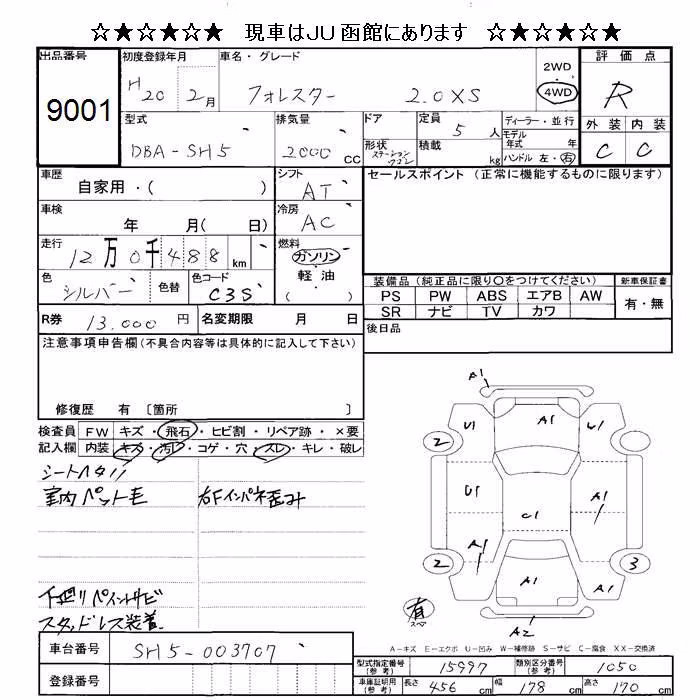 ☆★☆★☆★ 現車はJU函館にあります ☆★☆★☆★
出品番号 初度登録年月 車名・グレード 2WD 評価点
9001 H20 2月 フォレスター 2.0XS 4WD R
型式 排気量 ドア 定員 5人 ディーラー・並行 外装 内装
DBA-SH5 2000cc 形状 ステーションワゴン 積載 kg モデル年式 年 ハンドル 左・右 C C
車歴 自家用・( ) シフト AT セールスポイント (正常に機能するものに限ります)
車検 年 月( 日) 冷房 AC
走行 12万0千488km 燃料 ガソリン
軽油
( )
色 シルバー 色替 色コード C3S
装備品 (純正品に限り〇をつけてください) 新車保証書
PS PW ABS エアB AW 有・無
SR ナビ TV カワ
R券 13,000円 名変期限 月 日 後日品
注意事項申告欄(不具合内容等は具体的に記入して下さい)
修復歴 有 〔箇所 〕
検査員 FW キズ・飛石・ヒビ割・リペア跡・×要
記入欄 内装 キズ・汚レ・コゲ・穴・スレ・キレ・破レ
シートヘタリ
室内ペット毛 右Fインパネ歪ミ
下廻りペイントサビ
スタッドレス装着
A1
U1 A1 U1
2 2
U1 A1
C1
A1
2 A1 A1 3
有
スペア
A2
A-キズ E-エクボ U-凹み W-補修跡 S-サビ C-腐食 XX-交換済
車台番号 SH5-003707
登録番号
型式指定番号(参考) 15997 類別区分番号(参考) 1050
車庫証明用(参考) 長さ 456cm 幅 178cm 高さ 170cm